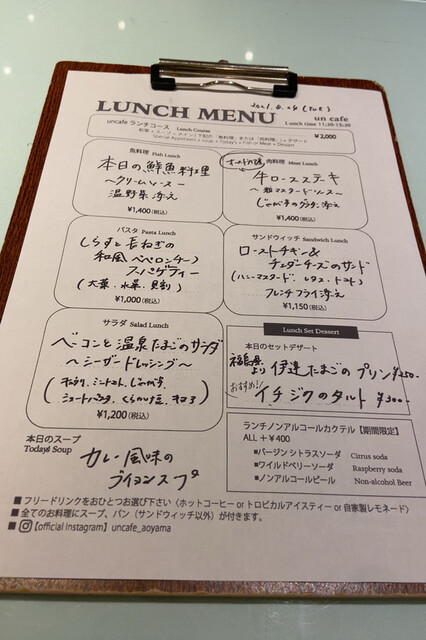 LUNCH MENU
un cafe
Lunch time 11:30-15:30
uncafe ランチコース Lunch Course
¥2,000
Special Appetizers + soup + Today's + Fish or Meat + Dessert
魚料理 Fish Lunch
本日の鮮魚料理
〜クリームソース〜
温野菜添え
¥1,400(税込)
肉料理 Meat Lunch
牛ロースステーキ
〜粒マスタードソース〜
じゃが芋のグラタン添え
¥1,400(税込)
パスタ Pasta Lunch
しらすと長ねぎの
和風ペペロンチーノ
スパゲティー
(大葉、水菜、
¥1,000(税込)
サンドウィッチ Sandwich Lunch
ローストチキン&
チェダーチーズのサンド
(ハニーマスタード、レタス、トマト)
フレンチフライ添え
¥1,150(税込)
サラダ Salad Lunch
ベーコンと温泉たまごのサラダ
〜シーザードレッシング〜
ミニトマト、じゃが芋
ショートパスタ、
¥1,200(税込)
Lunch Set Dessert
本日のセットデザート
福島県より 伊達たまごのプリン ¥250-
おすすめ! イチジクのタルト ¥300-
本日のスープ
Today's Soup
カレー風味の
ブイヨンスープ
ランチノンアルコールカクテル【期間限定】
ALL +¥400
■バージンシトラスソーダ Citrus soda
■ワイルドベリーソーダ Raspberry soda
■ノンアルコールビール Non-alcohol Beer
■フリードリンクをおひとつお選び下さい〈ホットコーヒー or トロピカルアイスティー or 自家製レモネード〉
■全てのお料理にスープ、パン(サンドウィッチ以外)が付きます。
■【official Instagram】uncafe_aoyama